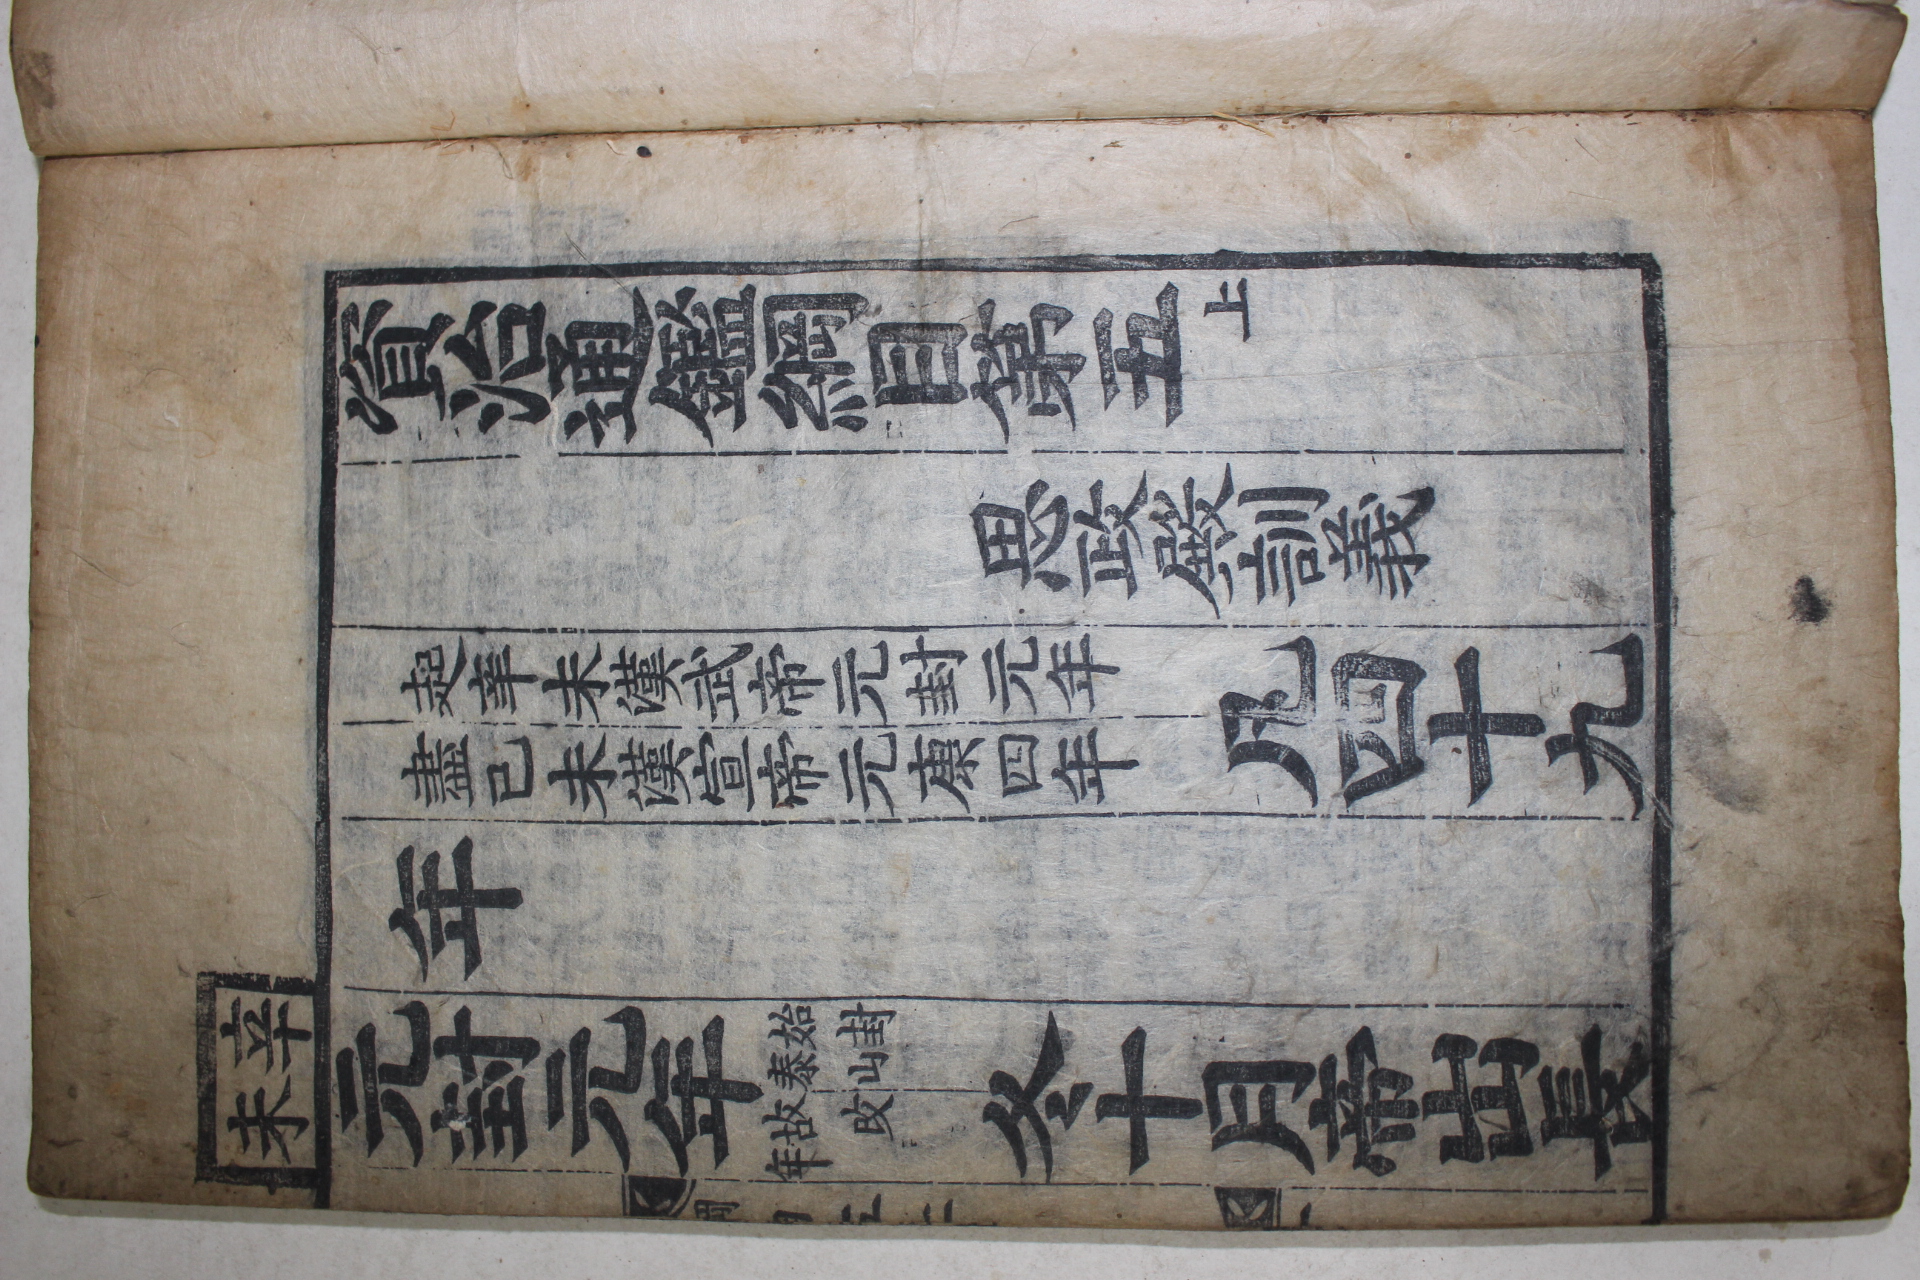 資治通鑑綱目第五上
思政殿訓義
起辛未漢武帝元封元年
盡己未漢宣帝元康四年
凡四十九
年
辛未
元封元年
始封
泰山
故改
年
冬十月帝出長